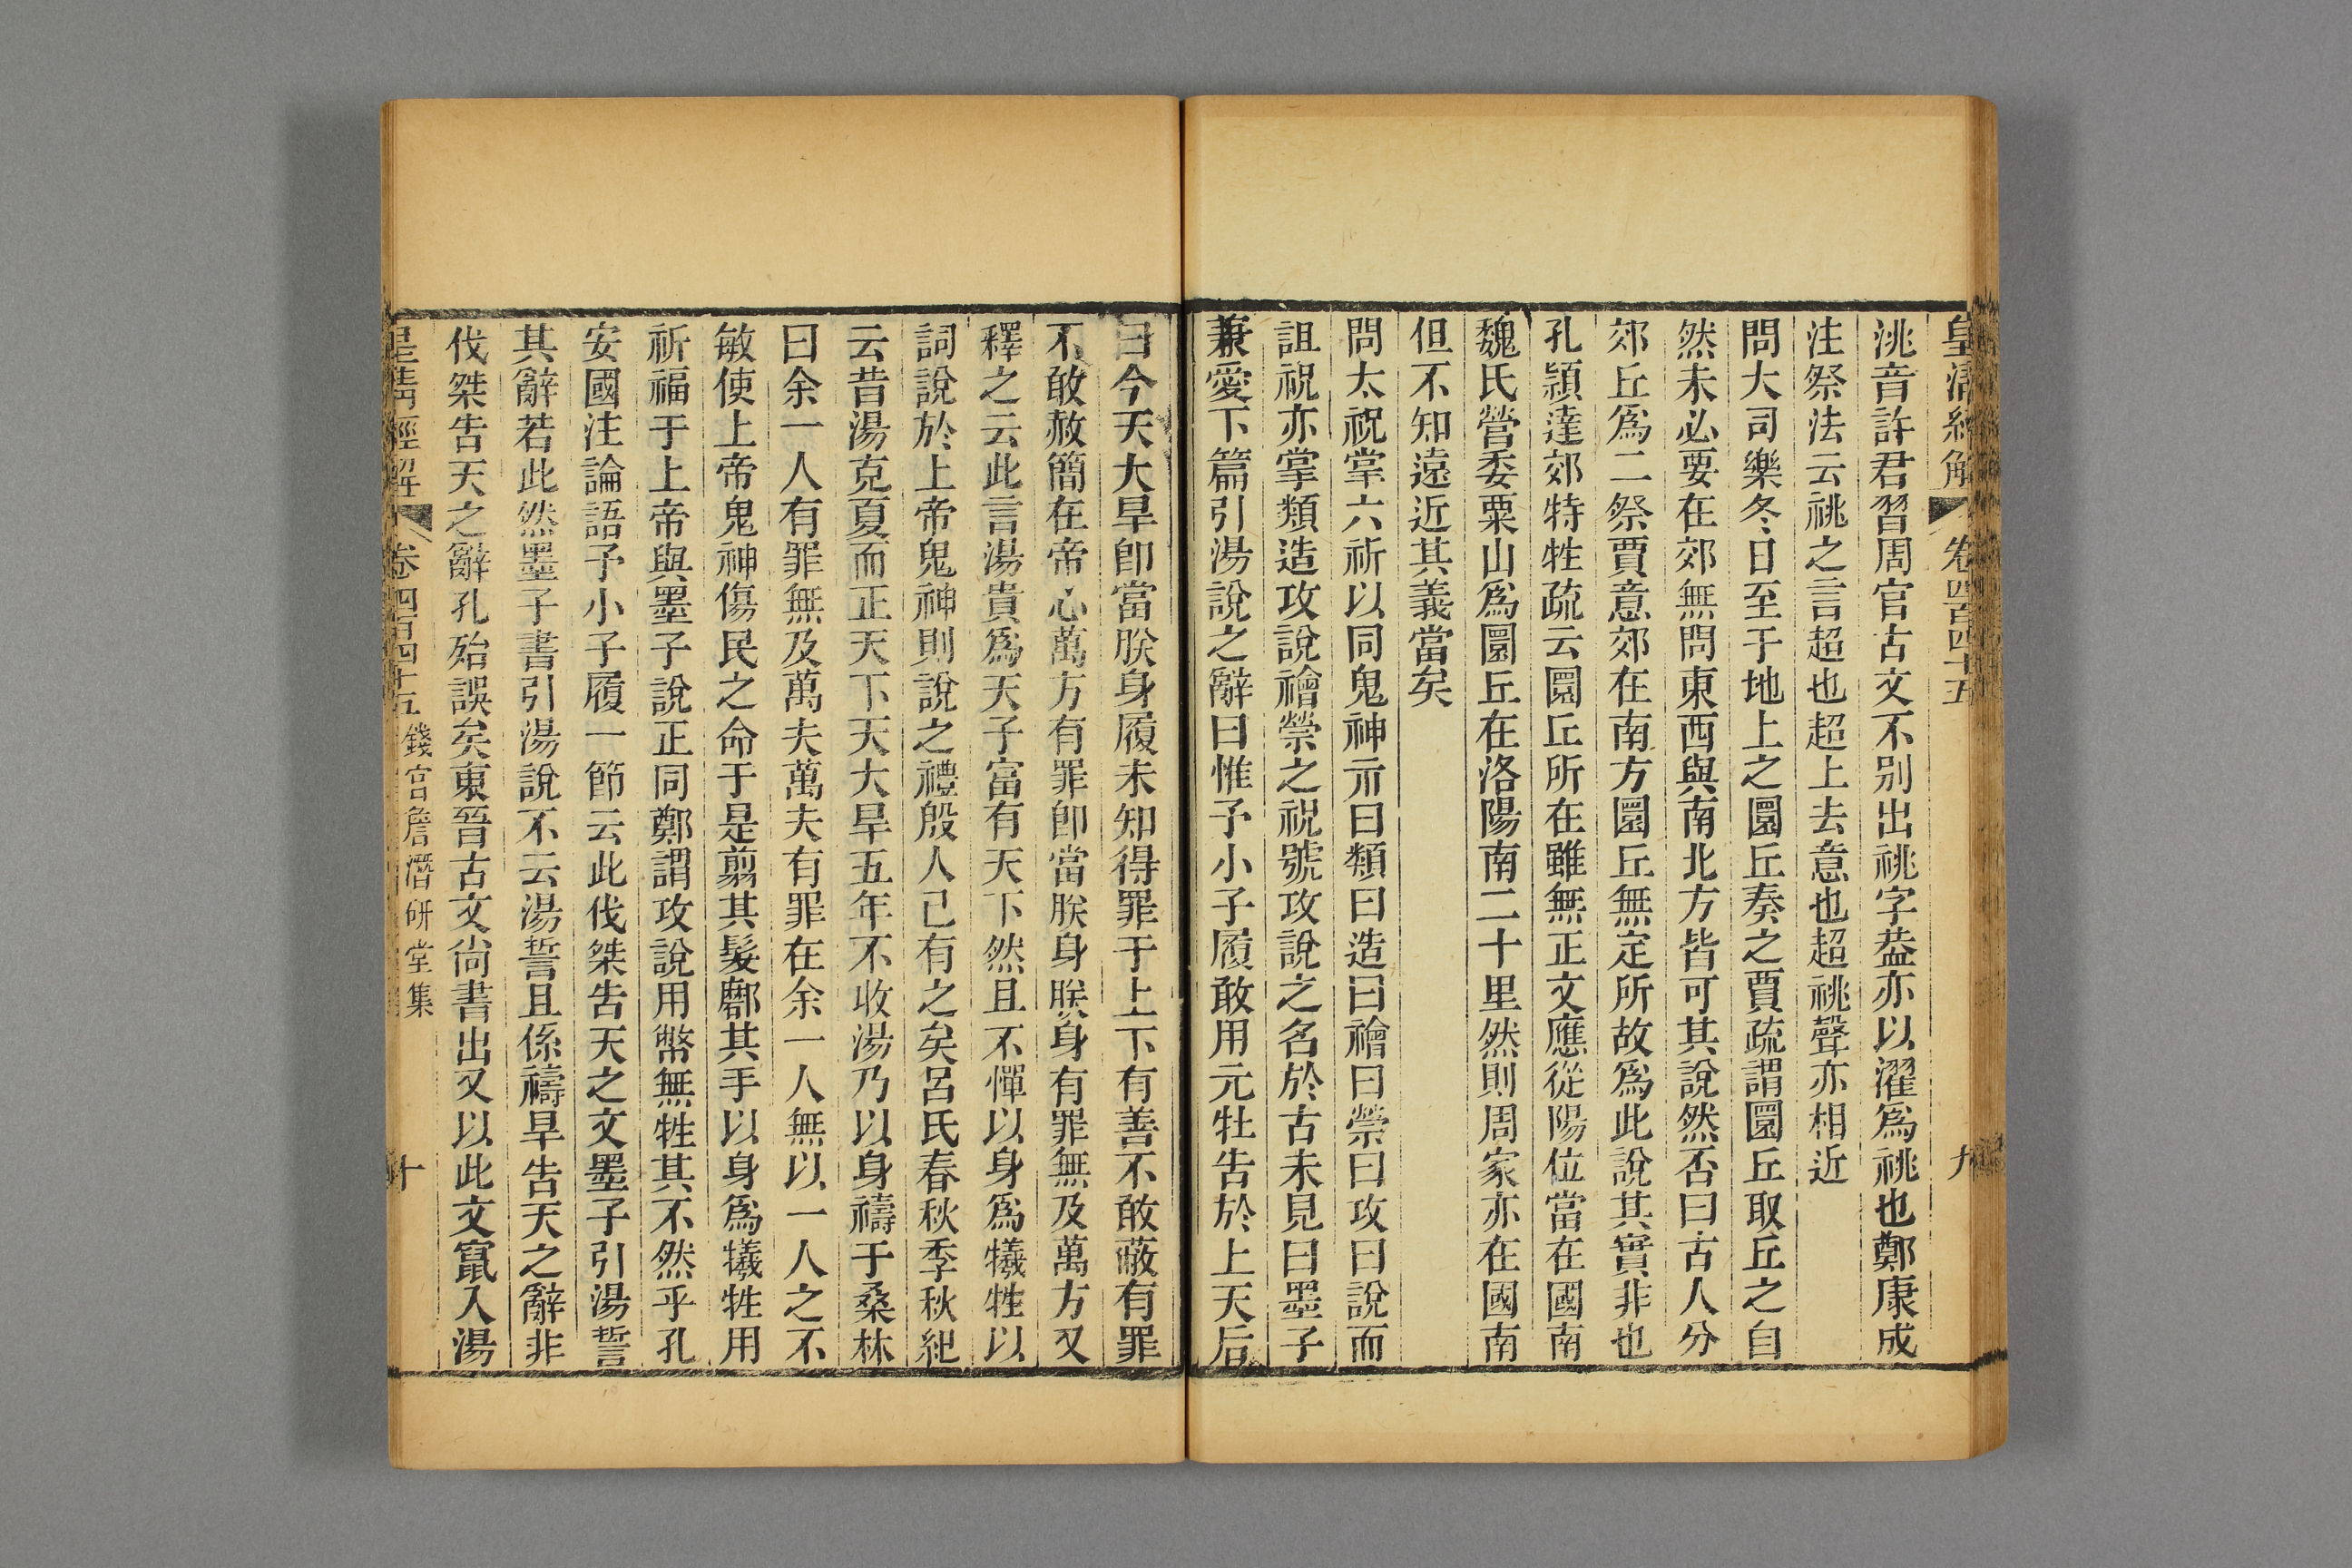 皇清經解 卷四百四十五 九
洮音許君習周官古文不別出祧字葢亦以濯爲祧也鄭康成
注祭法云祧之言超也超上去意也超祧聲亦相近
問大司樂冬日至于地上之圜丘奏之賈疏謂圜丘取丘之自
然未必要在郊無問東西與南北方皆可其說然否曰古人分
郊丘爲二祭賈意郊在南方圜丘無定所故爲此說其實非也
孔穎達郊特牲疏云圜丘所在雖無正文應從陽位當在國南
魏氏營委粟山爲圜丘在洛陽南二十里然則周家亦在國南
但不知遠近其義當矣
問太祝掌六祈以同鬼神示曰類曰造曰禬曰禜曰攻曰說而
詛祝亦掌類造攻說禬禜之祝號攻說之名於古未見曰墨子
兼愛下篇引湯說之辭曰惟予小子履敢用元牡告於上天后
曰今天大旱卽當朕身履未知得罪于上下有善不敢蔽有罪
不敢赦簡在帝心萬方有罪卽當朕身朕身有罪無及萬方又
釋之云此言湯貴爲天子富有天下然且不憚以身爲犧牲以
詞說於上帝鬼神則說之禮殷人已有之矣呂氏春秋季秋紀
云昔湯克夏而正天下天大旱五年不收湯乃以身禱于桑林
曰余一人有罪無及萬夫萬夫有罪在余一人無以一人之不
敏使上帝鬼神傷民之命于是翦其髮䣙其手以身爲犧牲用
祈福于上帝與墨子說正同鄭謂攻說用幣無牲其不然乎孔
安國注論語予小子履一節云此伐桀告天之文墨子引湯誓
其辭若此然墨子書引湯說不云湯誓且係禱旱告天之辭非
伐桀告天之辭孔殆誤矣東晉古文尙書出又以此文竄入湯
皇清經解 卷四百四十五 錢宮詹潛硏堂集 十